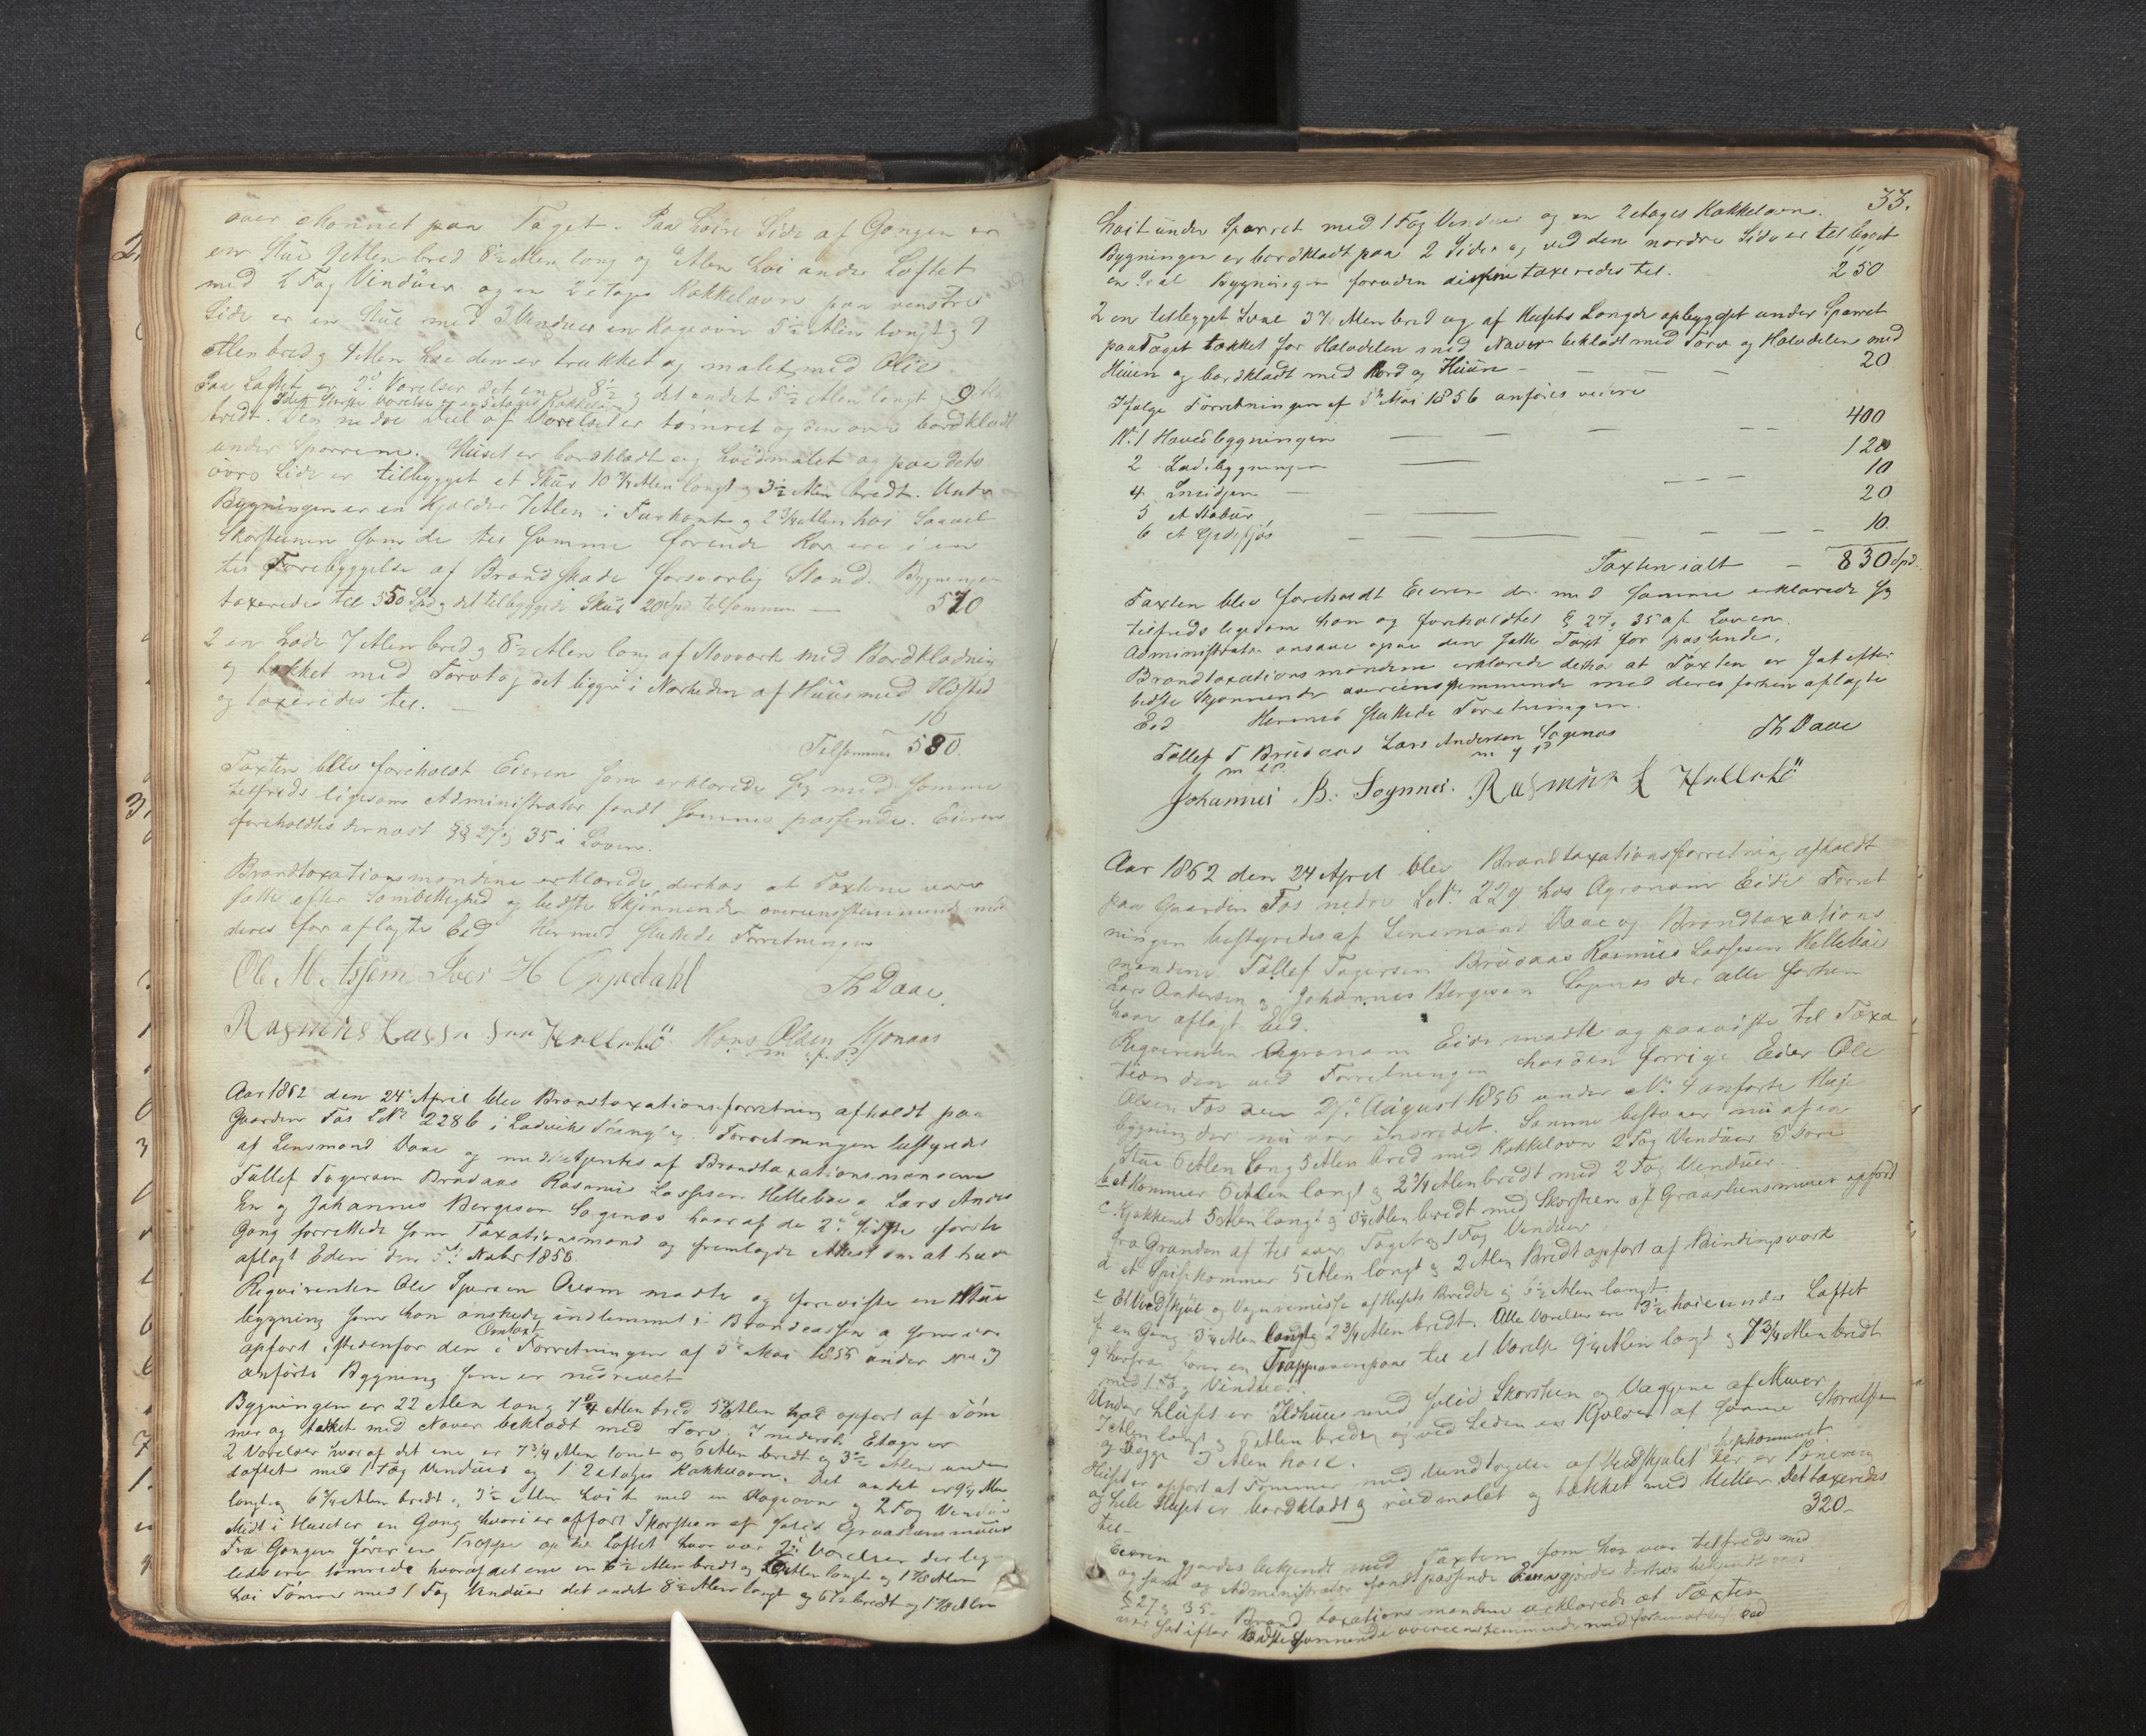 over Mønnet paa Taget. Paa høire Side af Gangen er
en Stue 9 Alen bred 8½ Alen lang og Alen høi under Loftet
med 2 Fag Vinduer og en 2 etages Kakkelovn paa venstre
Side er en Stue med 3 Vinduer en Kogeovn 5½ Alen langt og 9
Alen bred og 4 Alen høi den er trukket og malet med Olie
Paa Loftet er 2de Værelser det ene 8½ og det andet 5½ Alen langt og 9 Alen
I det største Værelse er en 3 etages Kakkelovn
bredt. Den nedre Deel af Værelset er tømret og den øvre bordklædt
under Sperrene. Huset er bordklædt og hvidmalet og paa dets
øvre Side er tilbygget et Skur 10¾ Alen langt og 3½ Alen bredt. Under
Bygningen er en Kjelder 7 Alen i Firkant og 2¾ Alen høi Saavel
Skorstenen som de til samme førende Rør ere i en
til Forebyggelse af Brandskade forsvarlig Stand. Bygningen
taxeredes til 550 Spd og det tilbyggede Skur 20 Spd tilsammen — 570
2 en Lade 7 Alen bred og 8½ Alen lang af Stavværk med Bordklædning
og tækket med Torvtag det ligger i Nærheden af Huus med Ildsted
og taxeredes til. — 10
Tilsammen 580.
Taxten blev foreholdt Eieren som erklærede sig med samme
tilfreds ligesom Administrator fandt samme passende. Eieren
foreholdtes dernæst §§ 27 og 35 i Loven.
Brandtaxationsmændene erklærede derhos at Taxterne vare
satte efter Samvittighed og bedste Skjønnende overeensstemmende med
deres før aflagte Eed Hermed sluttede Forretningen
Ole M Iver H Oppedahl Th Daae.
Rasmus Lassesen Hellebö Hans Olsen
m. f. P.
Aar 1862 den 24 April blev Brandtaxationsforretning afholdt paa
Gaarden Fos L.No 228b i Ladvik Thinglag. Forretningen bestyredes
af Lensmand Daae og medbetjentes af Brandtaxationsmændene
Tollef Brudaas Rasmus Lassesen Hellebøe og Lars Ander
sen og Johannes Bergesen hvoraf de 2de sidste første
Gang forrettede som Taxationsmænd og fremlagde Attest om at have
aflagt Eden den Novbr 1858.
Requirenten Ole mødte og foreviste en Stue
bygning som han ønskede indlemmet i Brandcassen og som var
opført istedenfor den i Forretningen af 5te Mai 1855 under No 3
Omtaxt
anførte Bygning som er nedrevet
Bygningen er 22 Alen lang 7¾ Alen bred 5¾ Alen høi opført af Tøm
mer og tækket med Næver beklædt med Torv. I nederste Etage er
2 Værelser hvoraf det ene er 7¾ Alen langt og 6 Alen bredt og 3½ Alen under
Loftet med 1 Fag Vinduer og 1 2 etages Kakkelovn. Det andet er 9¼ Alen
langt og 6¾ Alen bredt og 3½ Alen høit med en Kogeovn og 2 Fag Vinduer
Midt i Huset er en Gang hvori er opført Skorsten af solid Graasteensmuur
Fra Gangen fører en Trappe op til Loftet hvor var 2de Værelser der lige
ledes ere tømrede hvoraf det ene er 6½ Alen bredt og Alen langt og 1⅞ Alen
høi Tømmer med 1 Fag Vinduer det andet 8½ Alen langt og 6½ bredt og 1⅞ Alen
33.
høit under Sperret med 1 Fag Vinduer og en 2 etages Kakkelovn.
Bygningen er bordklædt paa 2 Sider og ved den nordre Side er tilbygget
en Sval Bygningen foruden denne taxeredes til. 250
2 en tilbygget Sval 3¾ Alen bred og af Husets Længde opbygget under Sperret
paa Taget tækket for Halvdelen med Næver beklædt med Torv og Halvdelen med
Huun og bordklædt med Bord og Huun — 20
Ifølge Forretningen af 5te Mai 1856 anføres videre
No. 1 Hovedbygningen — 400
2 Ladebygningen — 120
4 Smidjen — 10
5 et Stabur — 20
6 et Gjedefjøs — 10.
Taxten ialt — 830 Spd.
Taxten blev foreholdt Eieren der med samme erklærede sig
tilfreds ligesom han og foreholdtes § 27 og 35 af Loven.
Administrator ansaae ogsaa den satte Taxt for passende.
Brandtaxationsmændene erklærede derhos at Taxten er sat efter
bedste Skjønnende overeensstemmende med deres forhen aflagte
Eed Hermed sluttede Forretningen.
Tollef T Brudaas Lars Andersen Th Daae
m f P. m f P
Johannes B. Rasmus L Hellebö
Aar 1862 den 24 April blev Brandtaxationsforretning afholdt
paa Gaarden Fos nedre L.No. 229 hos Agronom Eide Forret
ningen bestyredes af Lensmand Daae og Brandtaxations
mændene Tollef Brudaas Rasmus Lassesen Hellebøe
Lars Andersen og Johannes Bergesen der alle forhen
have aflagt Eed.
Requirenten Agronom Eide mødte og paaviste til Taxa
tion den ved Forretningen hos den forrige Eier Ole
Olsen Fos den 27de August 1856 under No. 4 anførte Huus
bygning der nu var indredet. Samme bestaaer nu af en
Stue 6 Alen lang 5 Alen bred med Kakkelovn 2 Fag Vinduer
b et Kammer 6 Alen langt og 2¾ Alen bredt med 2 Fag Vinduer
c. Kjøkkenet 5 Alen langt og Alen bredt med Skorsten af Graasteensmuur opført
fra Grunden af til over Taget og 1 Fag Vinduer
d et Spisekammer 5 Alen langt og 2 Alen Bredt opført af Bindingsværk
e Et Vedskjul og Vognremisse af Husets Bredde og 5½ Alen langt
f en Gang 3¼ Alen lang og 2¾ Alen bredt. Alle Værelser ere 3½ høie under Loftet
g herfra fører en Trappe til et Værelse 9¼ Alen langt og 7¾ Alen bredt
med 1 Fag Vinduer.
Under Huset er Ildhuus med solid Skorsten og Væggene af Muur
7 Alen langt og 6 Alen bredt og ved Siden en Kjelder af samme Størrelse
og begge 3 Alen høie.
Huset er opført af Tømmer med Undtagelse af Vedskjulet
og hele Huset er bordklædt og rødmalet og tækket med Heller Det taxeredes
til — 320 —
Eieren gjordes bekjendt med Taxten som han var tilfreds med
og som og Administrator fandt passende Eieren gjordes derhos bekjendt med
§ 27 og 35 — Brandtaxationsmændene erklærede at Taxten
var sat efter bedste Skjønnende overeensstemmende med forhen aflagt Eed